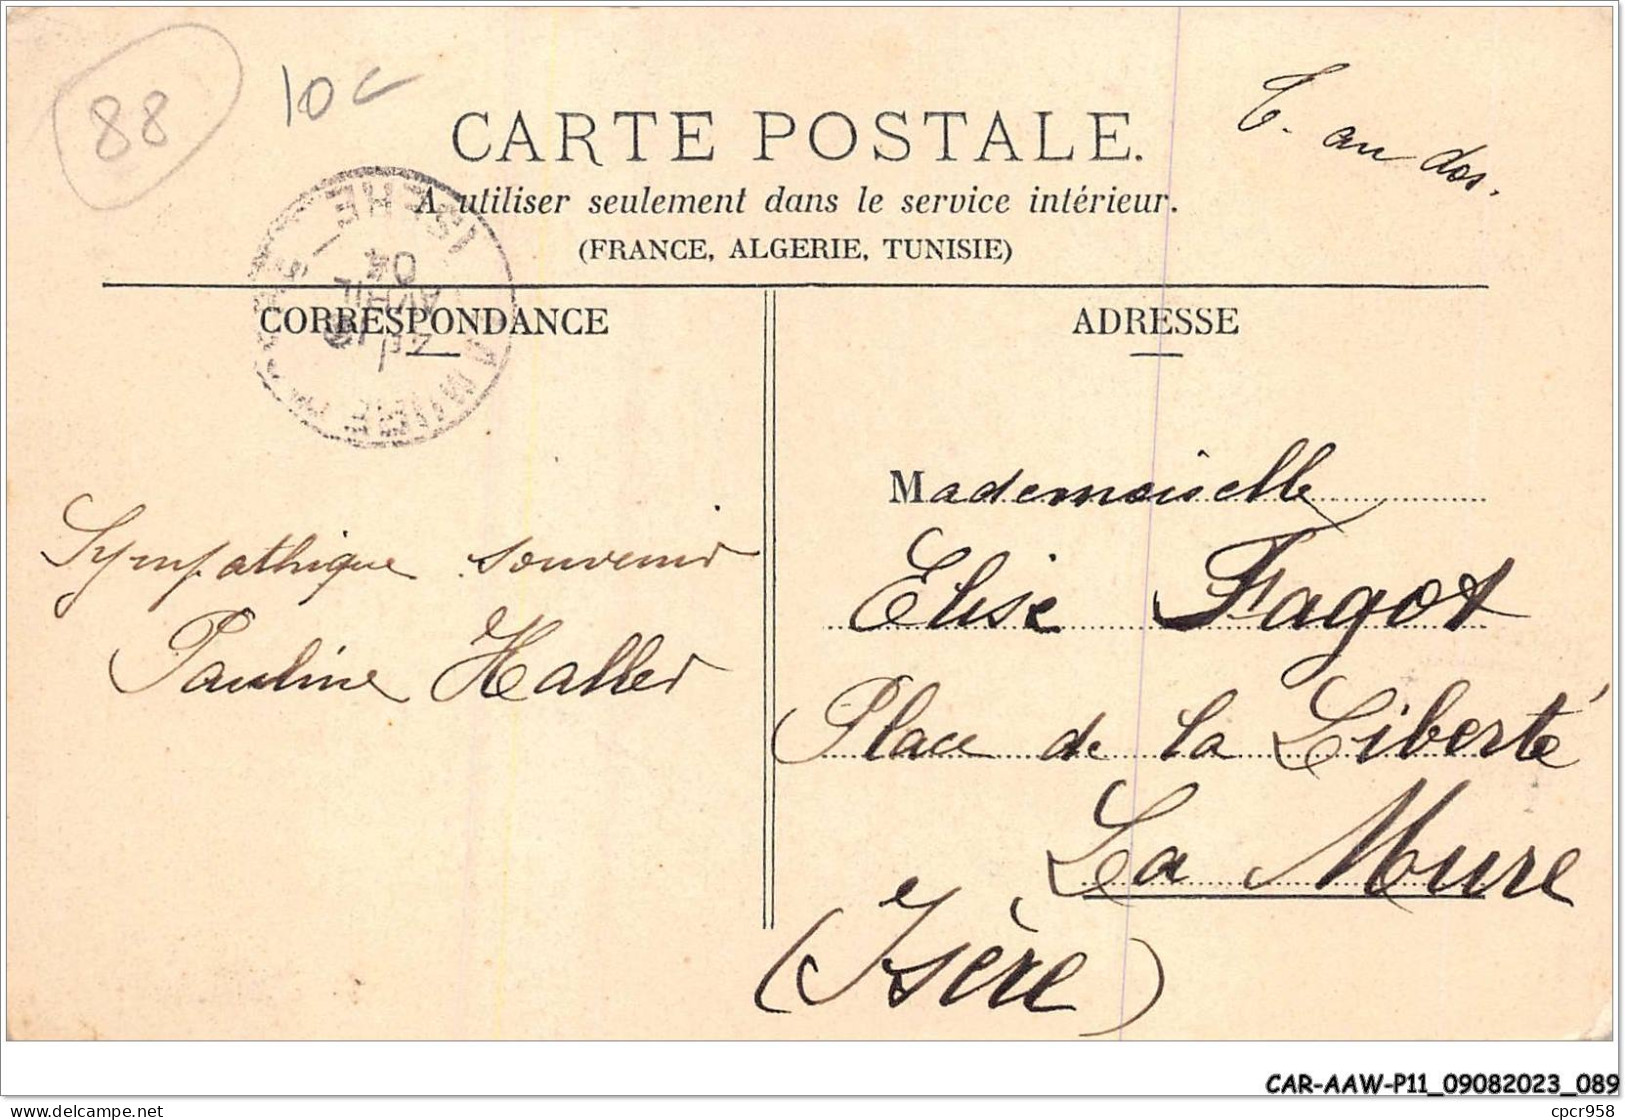 88
10c
T. au dos.
CARTE POSTALE.
A utiliser seulement dans le service intérieur.
(FRANCE, ALGERIE, TUNISIE)
ISERE
AVRIL
04
CORRESPONDANCE
Sympathique souvenir
Pauline Haller
ADRESSE
Mademoiselle
Elise Fagot
Place de la Liberté
La Mure
(Isère)
CAR-AAW-P11_09082023_089
delcampe.net
cpcr958